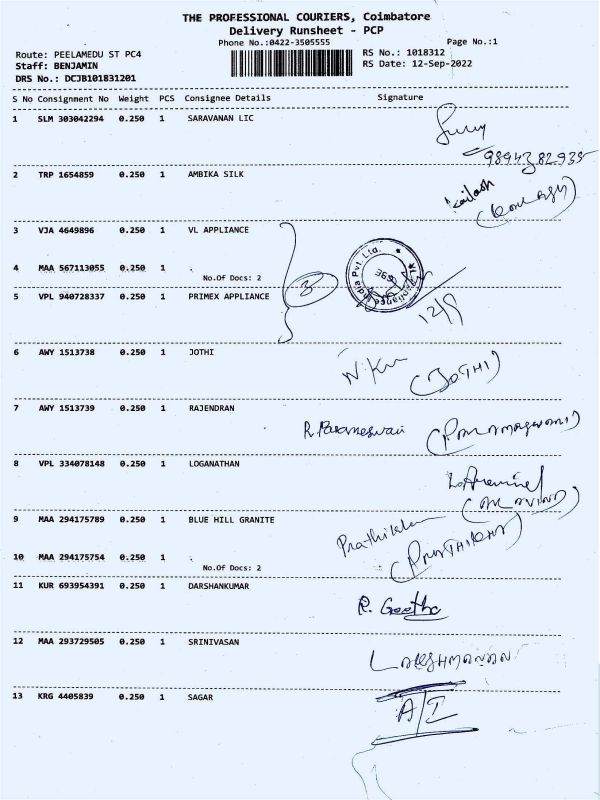 THE PROFESSIONAL COURIERS, Coimbatore
Delivery Runsheet - PCP
Phone No.:0422-3505555
Page No.:1
Route: PEELAMEDU ST PC4
RS No.: 1018312
Staff: BENJAMIN
RS Date: 12-Sep-2022
DRS No.: DCJB101831201
S No Consignment No Weight PCS Consignee Details Signature
1 SLM 303042294 0.250 1 SARAVANAN LIC
9894382935
2 TRP 1654859 0.250 1 AMBIKA SILK
Kailash
3 VJA 4649896 0.250 1 VL APPLIANCE
4 MAA 567113055 0.250 1
No.Of Docs: 2
3
India Pvt. Ltd.
5 VPL 940728337 0.250 1 PRIMEX APPLIANCE
12/9
6 AWY 1513738 0.250 1 JOTHI
(JOTHI)
7 AWY 1513739 0.250 1 RAJENDRAN
R. Parameswari
8 VPL 334078148 0.250 1 LOGANATHAN
(ARAVIND)
9 MAA 294175789 0.250 1 BLUE HILL GRANITE
10 MAA 294175754 0.250 1
No.Of Docs: 2
11 KUR 693954391 0.250 1 DARSHANKUMAR
R. Geetha
12 MAA 293729505 0.250 1 SRINIVASAN
LAKSHMANAN
13 KRG 4405839 0.250 1 SAGAR
A/I